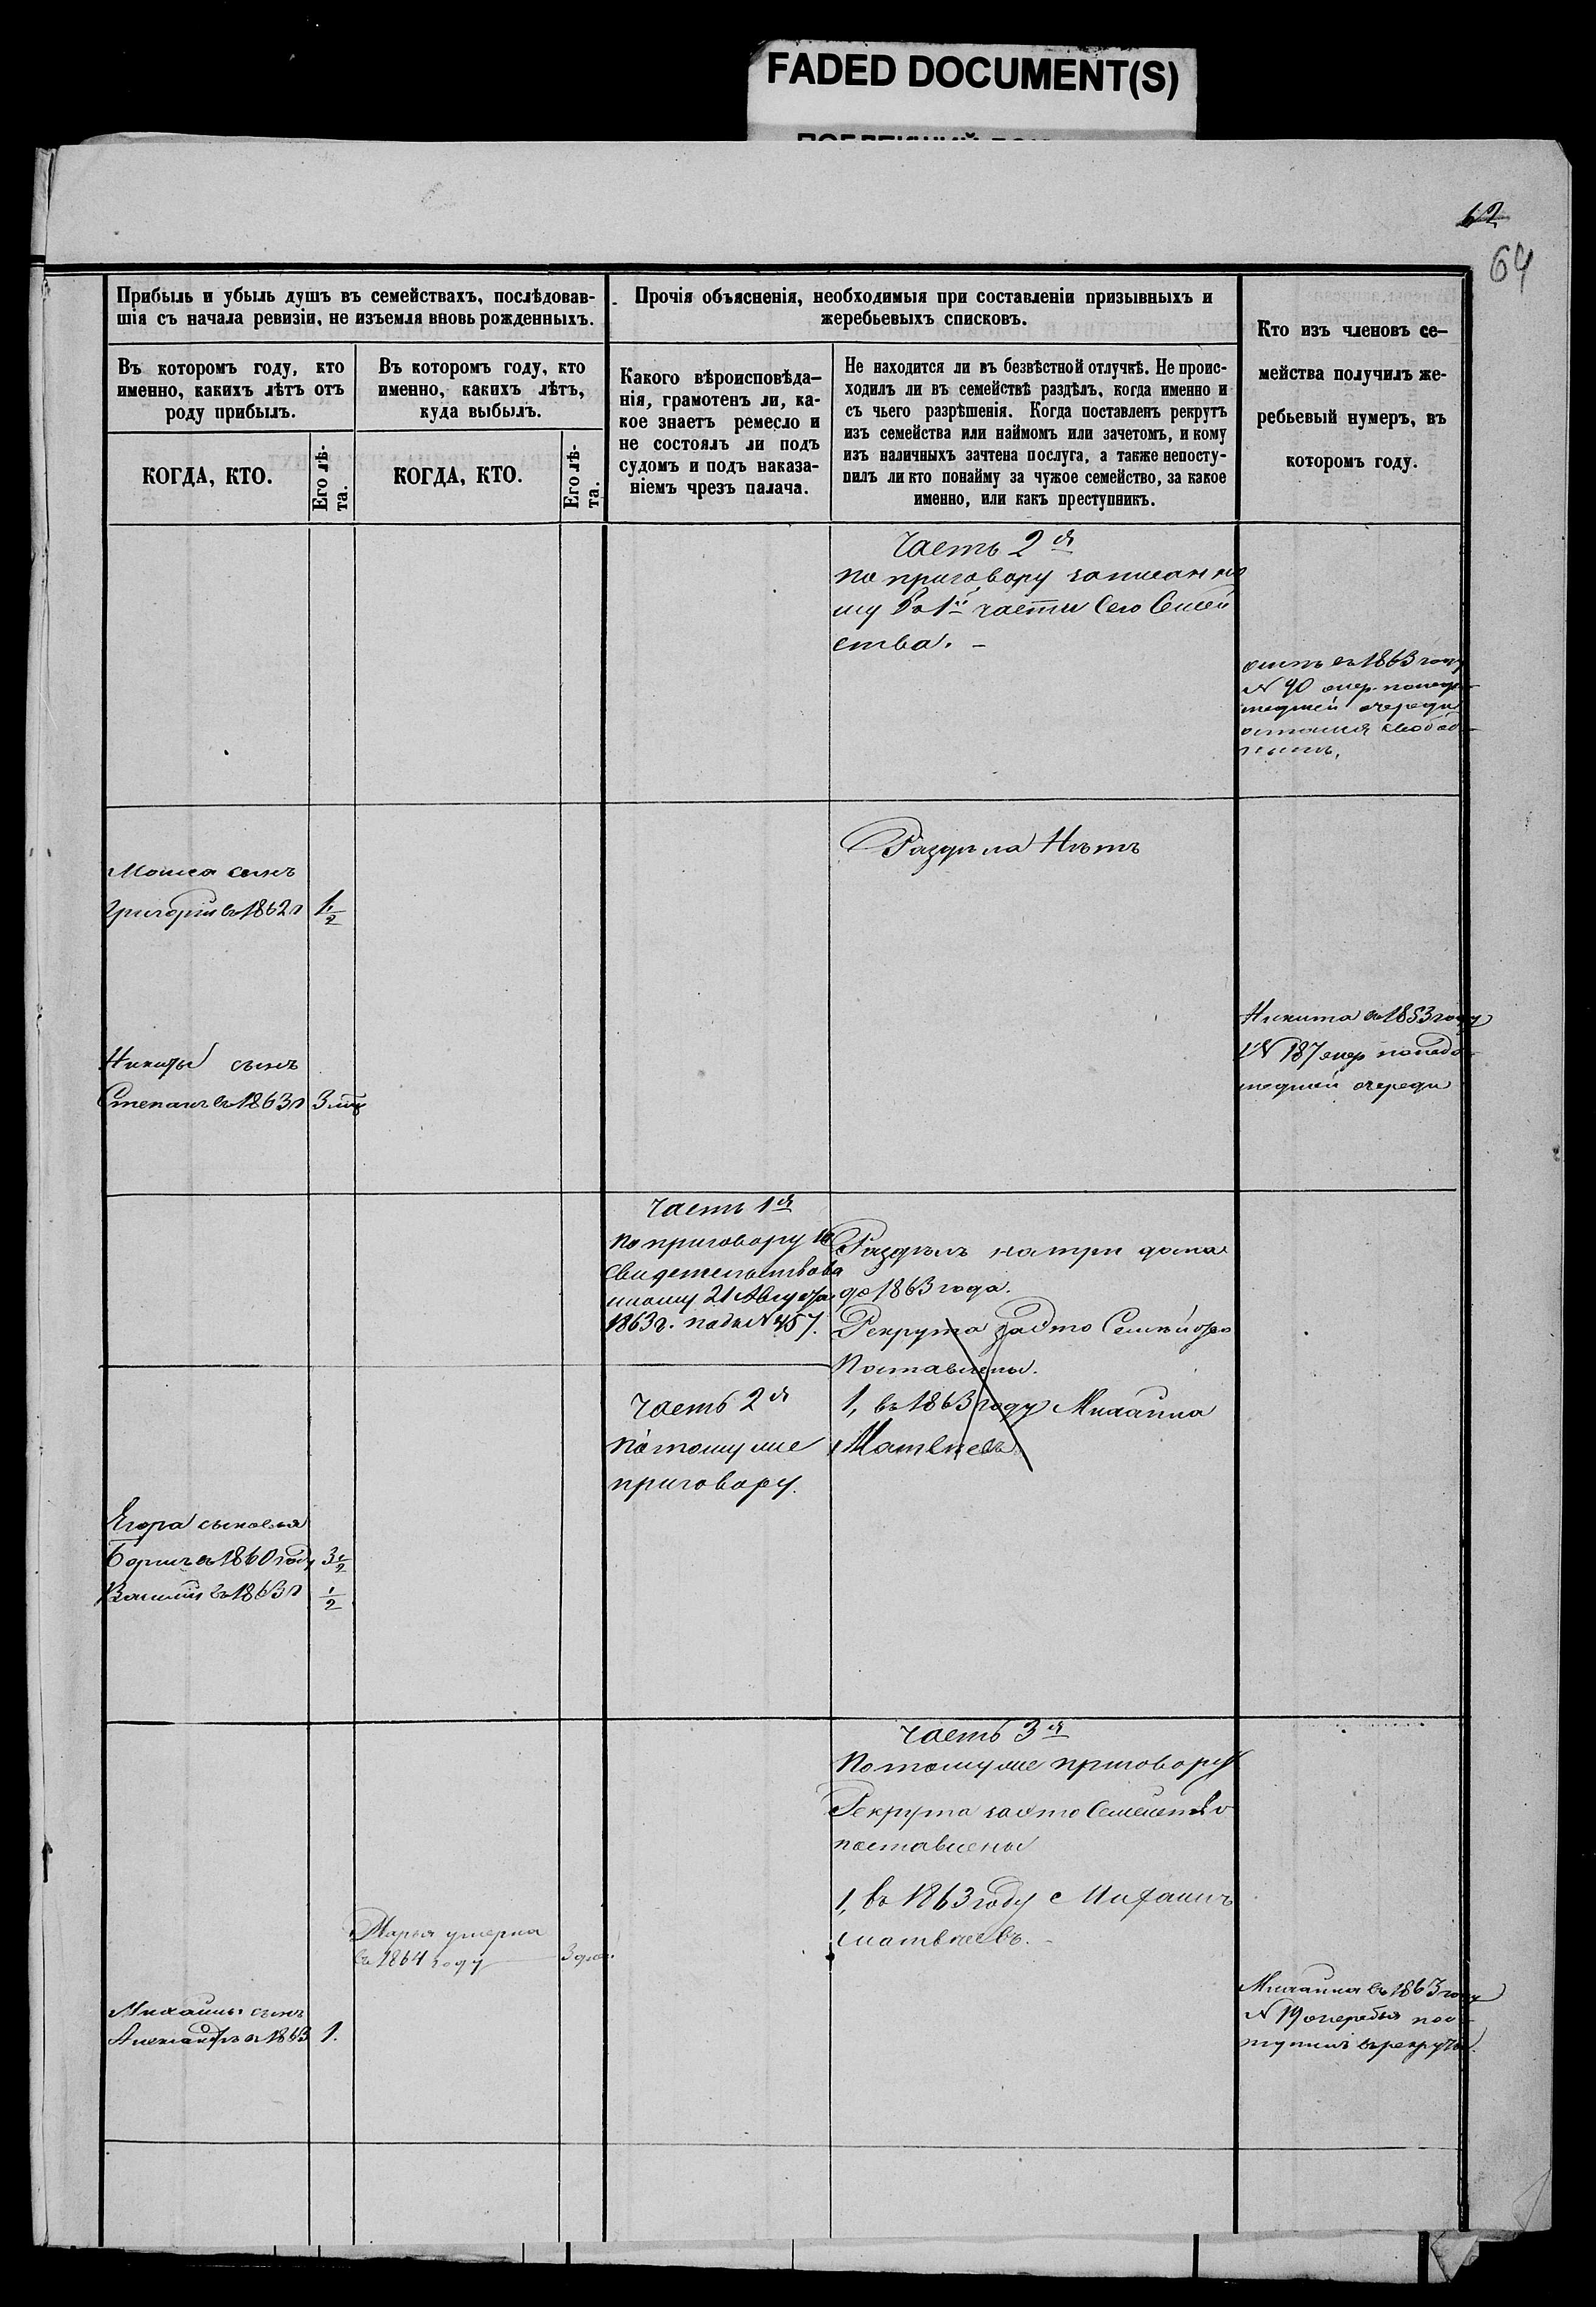 FADED DOCUMENT(S)
62
64
Прибыль и убыль душъ въ семействахъ, послѣдовав-
шія съ начала ревизіи, не изъемля вновь рожденныхъ.
Прочія объясненія, необходимыя при составленіи призывныхъ и
жеребьевыхъ списковъ.
Кто изъ членовъ се-
мейства получилъ же-
ребьевый нумеръ, въ
которомъ году.
Въ которомъ году, кто
именно, какихъ лѣтъ отъ
роду прибылъ.
Въ которомъ году, кто
именно, какихъ лѣтъ,
куда выбылъ.
Какого вѣроисповѣда-
нія, грамотенъ ли, ка-
кое знаетъ ремесло и
не состоялъ ли подъ
судомъ и подъ наказа-
ніемъ чрезъ палача.
Не находится ли въ безвѣстной отлучкѣ. Не проис-
ходилъ ли въ семействѣ раздѣлъ, когда именно и
съ чьего разрѣшенія. Когда поставленъ рекрутъ
изъ семейства или наймомъ или зачетомъ, и кому
изъ наличныхъ зачтена послуга, а также непосту-
пилъ ли кто понайму за чужое семейство, за какое
именно, или какъ преступникъ.
КОГДА, КТО.
Его лѣ-
та.
КОГДА, КТО.
Его лѣ-
та.
Часть 2я
по приговору записанно
му въ 1й части сего Семей
ства. –
въ 1863 году
N 90
очереди
остался свобод-
нымъ.
Раздѣла Нѣтъ
Моисея сынъ
Григорій въ 1862 г 1 1/2
Никита въ 1853 году
N 187 жер
шедшей очереди
Никиты сынъ
Степанъ въ 1863 г 3 мѣ
Часть 1я
по приговору
свидетельствова
нному 21 Августа
1863 г. подъ N 457.
Раздѣлъ на три дома
до 1863 года.
Рекрута за это Семейство
Поставлены.
1, въ 1863 году Михаила
Матвѣевъ
Часть 2я
по тому же
приговору.
Егора сыновья
Борисъ въ 1860 году 3 1/2
Василій въ 1863 г 1/2
Часть 3я
По тому же приговору
Рекрута за это Семейство
поставлены
1, въ 1863 году с Михаилъ
Матвѣевъ. –
Марья умерла
въ 1864 году
Михаилы сынъ
Александръ въ 1863 1.
Михаила въ 1863 году
N 19 жеребья пос-
тупилъ въ рекруты.